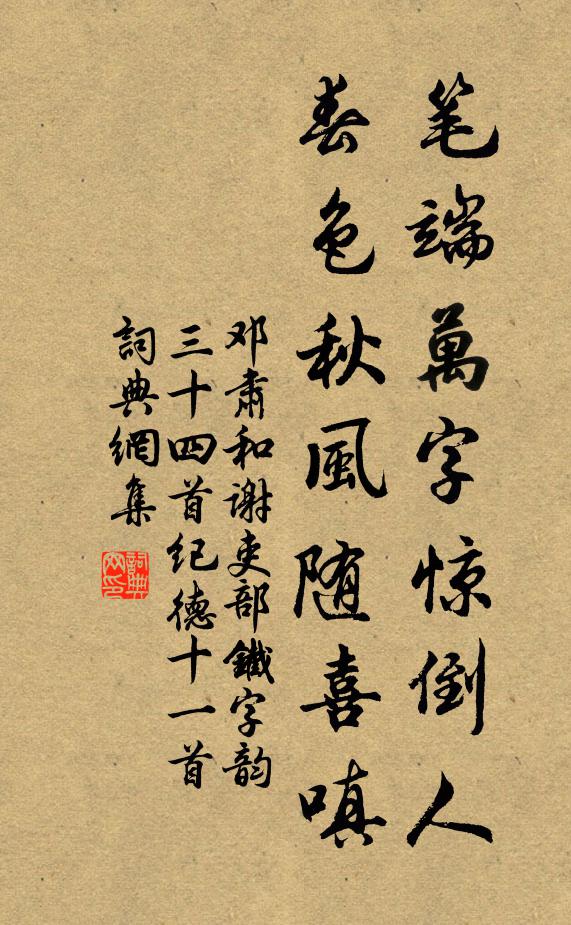 笔端萬字惊倒人
春色秋風随喜嗔
邓肅和谢吏部鐵字韵
三十四首纪德十一首
詞典網集
詞典网印